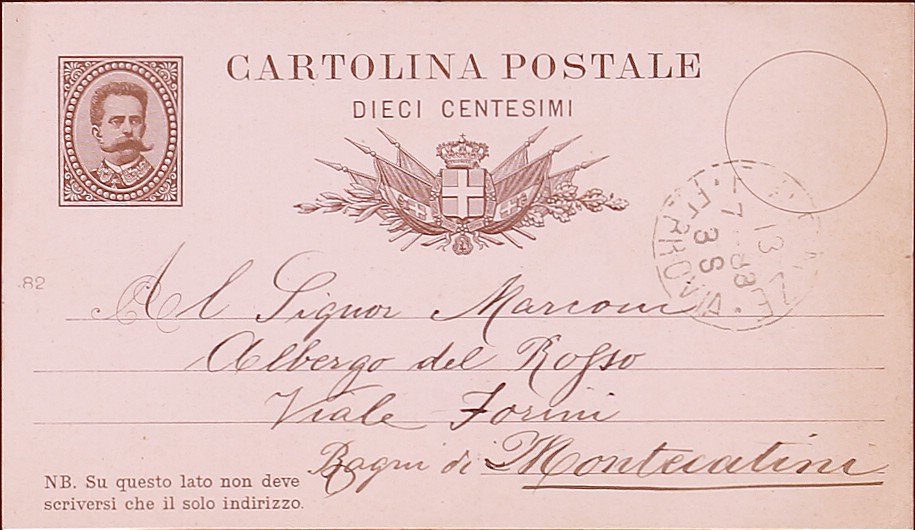 CARTOLINA POSTALE
DIECI CENTESIMI
82
Al Signor Marconi
Albergo del Rosso
Viale Forini
Bagni di Montecatini
NB. Su questo lato non deve
scriversi che il solo indirizzo.